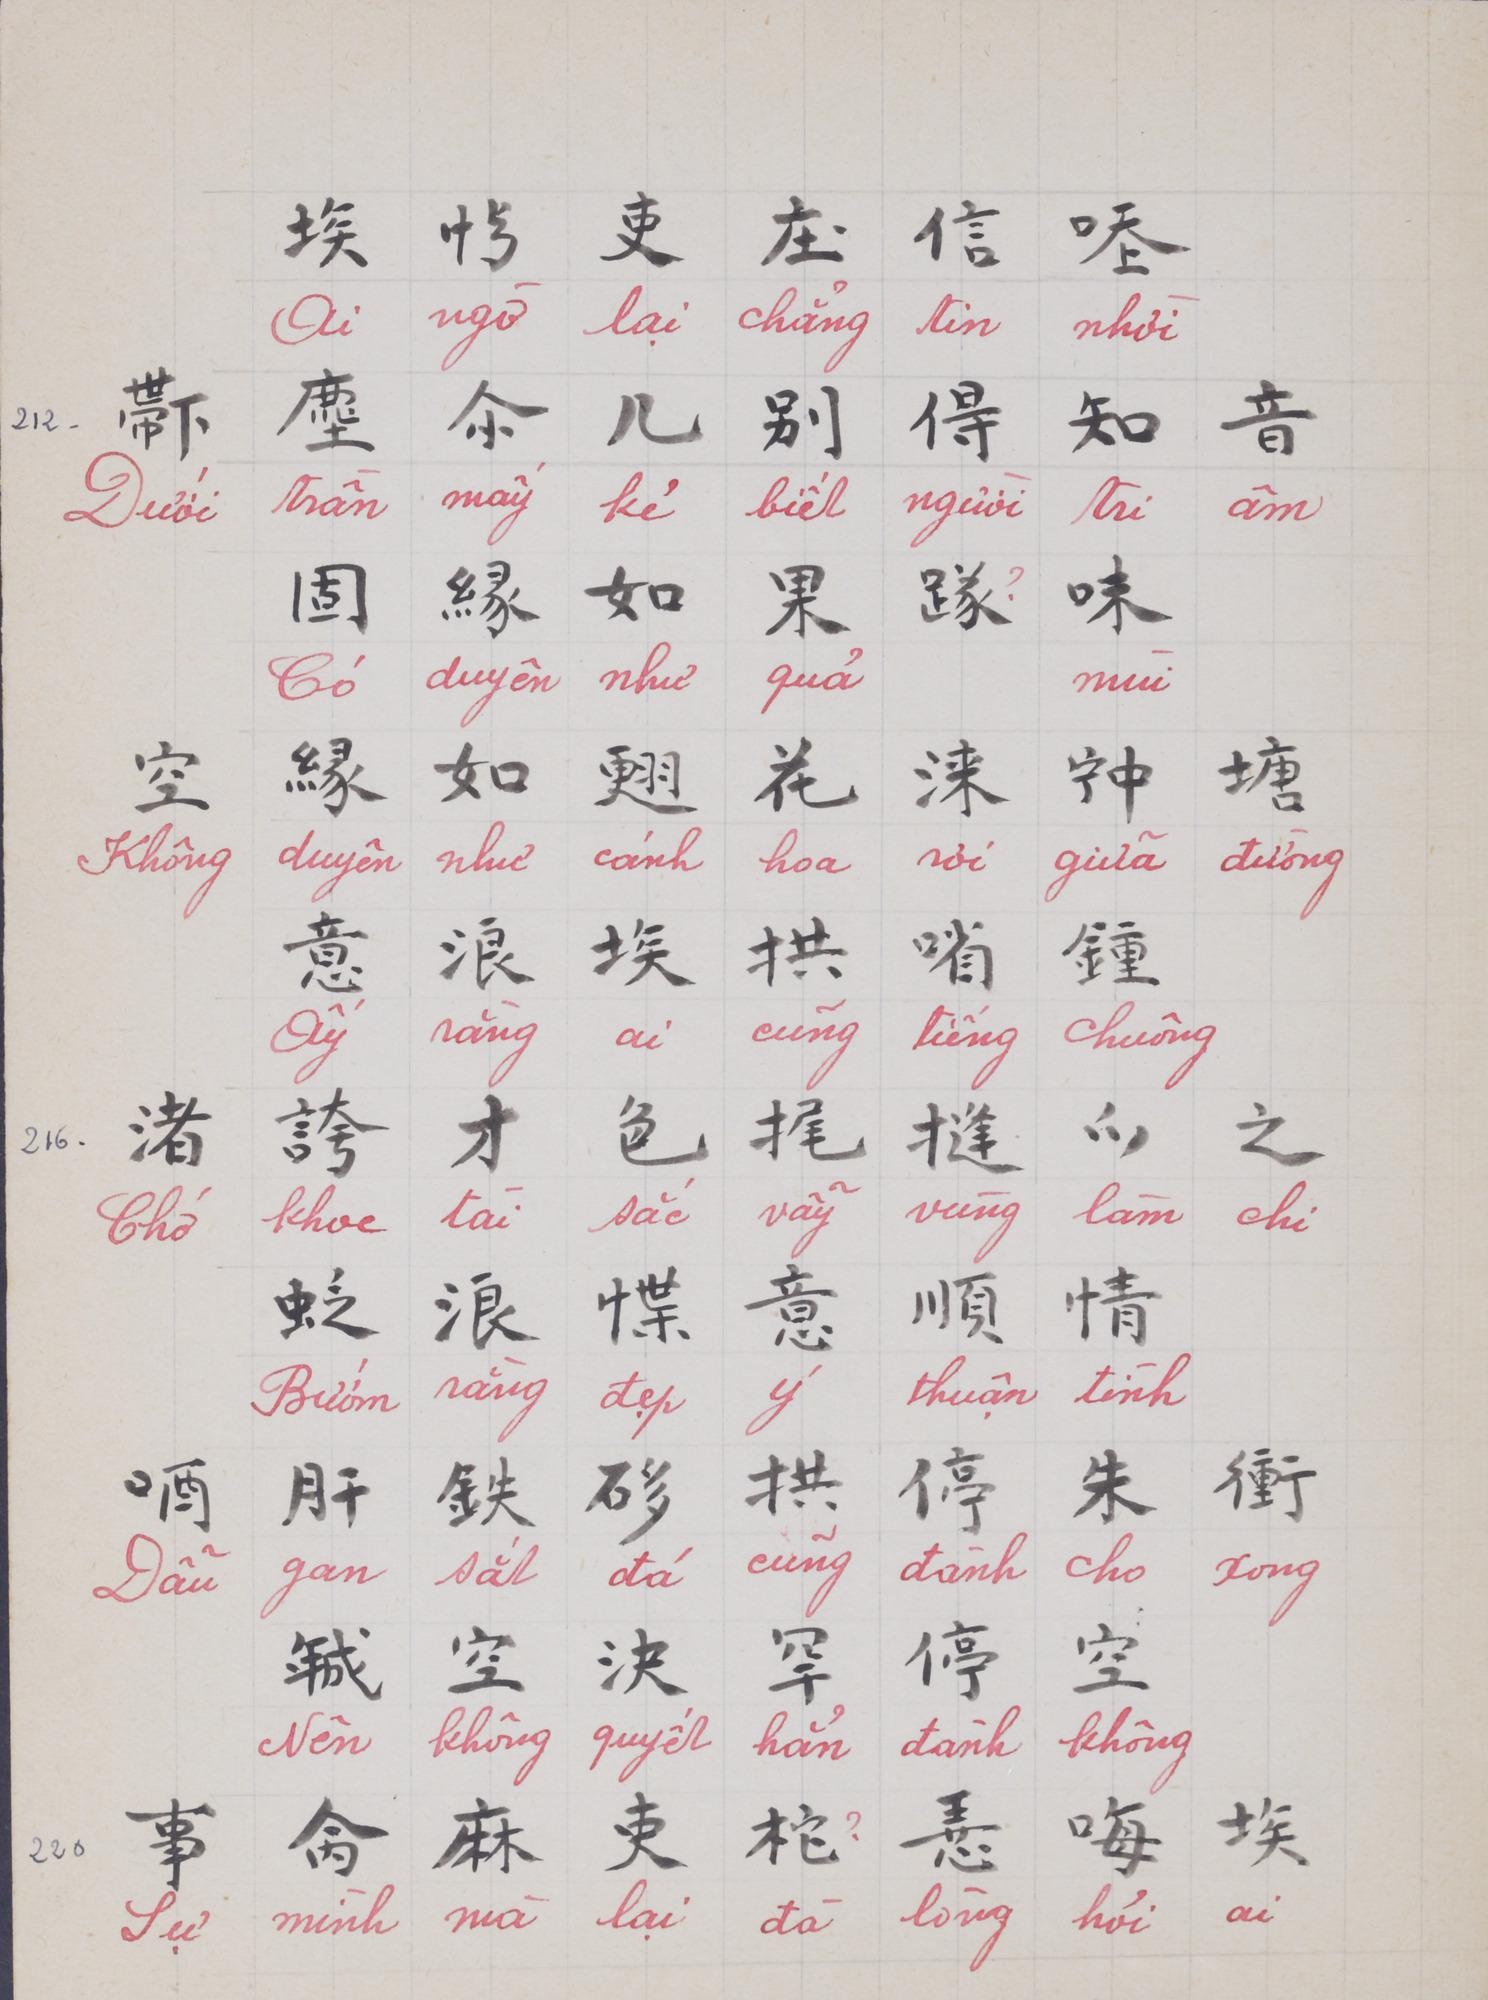 埃 㤕 吏 庄 信 𠳒
Ai ngờ lại chẳng tin nhời
212. 𤲂 塵 尒 几 別 得 知 音
Dưới trần mấy kẻ biết người tri âm
固 縁 如 果 ? 味
Có duyên như quả mùi
空 縁 如 𦑃 花 淶 𡨌 塘
Không duyên như cánh hoa rơi giữa đường
意 浪 埃 拱 㗂 鍾
Ấy rằng ai cũng tiếng chuông
216. 渚 誇 才 色 挴 摓 𫜵 之
Chớ khoe tài sắc vẫy vùng làm chi
𧊉 浪 惵 意 順 情
Bướm rằng đẹp ý thuận tình
唒 肝 鉄 𥒥 拱 停 朱 衝
Dẫu gan sắt đá cũng đành cho xong
𢧚 空 決 罕 停 空
Nên không quyết hẳn đành không
220 事 𠇮 麻 吏 柁 ? 𢚸 𠳨 埃
Sự mình mà lại đà lòng hỏi ai